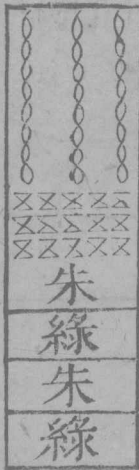 朱
綠
朱
綠